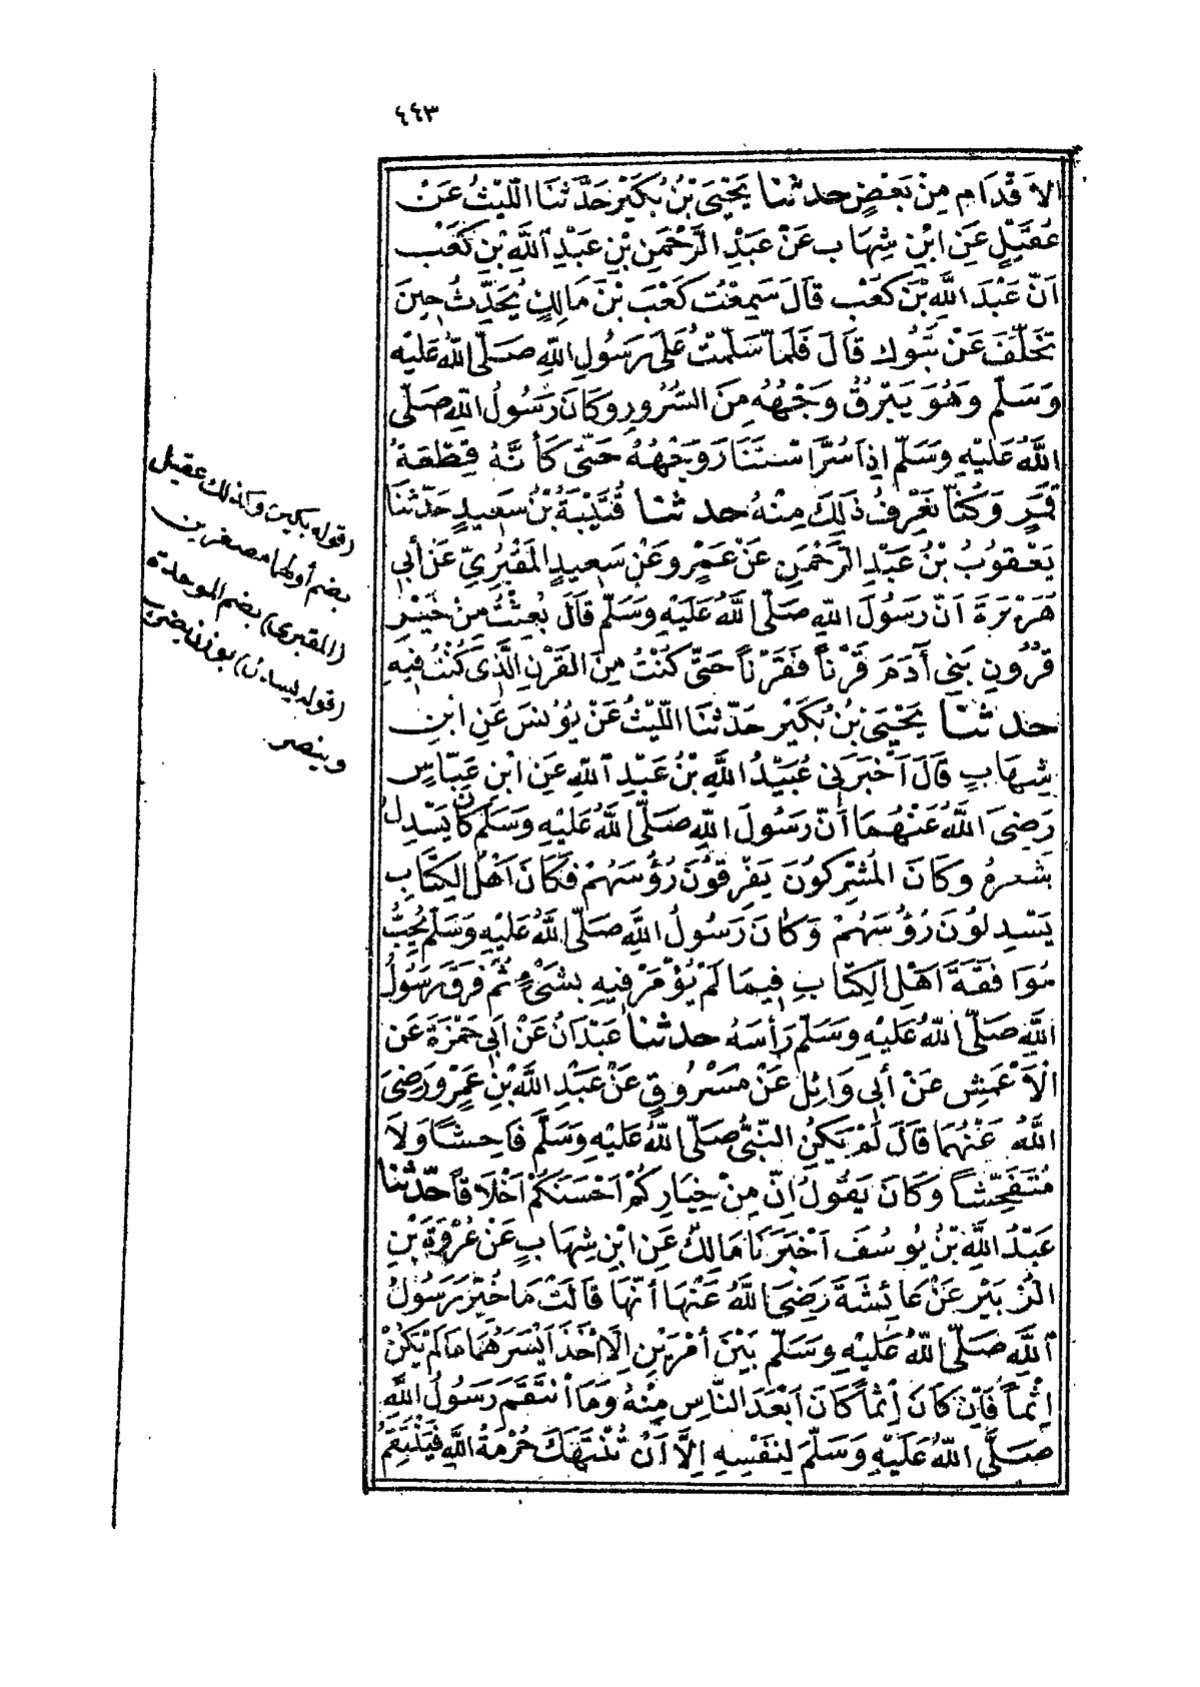 ٤٤٣
الأَقْدَامِ مِنْ بَعْضٍ حدثنا يَحْيَى بْنُ بُكَيْرٍ حَدَّثَنَا اللَّيْثُ عَنْ
عُقَيْلٍ عَنِ ابْنِ شِهَابٍ عَنْ عَبْدِ الرَّحْمَنِ بْنِ عَبْدِ اللَّهِ بْنِ كَعْبٍ
اَنَّ عَبْدَ اللَّهِ بْنَ كَعْبٍ قَالَ سَمِعْتُ كَعْبَ بْنَ مَالِكٍ يُحَدِّثُ حِينَ
تَخَلَّفَ عَنْ تَبُوكَ قَالَ فَلَمَّا سَلَّمْتُ عَلَى رَسُولِ اللَّهِ صَلَّى اللَّهُ عَلَيْهِ
وَسَلَّمَ وَهُوَ يَبْرُقُ وَجْهُهُ مِنَ السُّرُورِ وَكَانَ رَسُولُ اللَّهِ صَلَّى
اللَّهُ عَلَيْهِ وَسَلَّمَ اِذَا سُرَّ اسْتَنَارَ وَجْهُهُ حَتَّى كَأَنَّهُ قِطْعَةُ
قَمَرٍ وَكُنَّا نَعْرِفُ ذَلِكَ مِنْهُ حدثنا قُتَيْبَةُ بْنُ سَعِيدٍ حَدَّثَنَا
يَعْقُوبُ بْنُ عَبْدِ الرَّحْمَنِ عَنْ عَمْرٍو عَنْ سَعِيدٍ المَقْبُرِيِّ عَنْ أَبِي
هُرَيْرَةَ اَنَّ رَسُولَ اللَّهِ صَلَّى اللَّهُ عَلَيْهِ وَسَلَّمَ قَالَ بُعِثْتُ مِنْ خَيْرِ
قُرُونِ بَنِي آدَمَ قَرْنًا فَقَرْنًا حَتَّى كُنْتُ مِنَ القَرْنِ الَّذِي كُنْتُ فِيهِ
حدثنا يَحْيَى بْنُ بُكَيْرٍ حَدَّثَنَا اللَّيْثُ عَنْ يُونُسَ عَنِ ابْنِ
شِهَابٍ قَالَ اَخْبَرَنِي عُبَيْدُ اللَّهِ بْنُ عَبْدِ اللَّهِ عَنِ ابْنِ عَبَّاسٍ
رَضِيَ اللَّهُ عَنْهُمَا اَنَّ رَسُولَ اللَّهِ صَلَّى اللَّهُ عَلَيْهِ وَسَلَّمَ كَانَ يَسْدِلُ
شَعْرَهُ وَكَانَ المُشْرِكُونَ يَفْرِقُونَ رُؤُسَهُمْ فَكَانَ اَهْلُ الكِتَابِ
يَسْدِلُونَ رُؤُسَهُمْ وَكَانَ رَسُولُ اللَّهِ صَلَّى اللَّهُ عَلَيْهِ وَسَلَّمَ يُحِبُّ
مُوَافَقَةَ اَهْلِ الكِتَابِ فِيمَا لَمْ يُؤْمَرْ فِيهِ بِشَيْءٍ ثُمَّ فَرَقَ رَسُولُ
اللَّهِ صَلَّى اللَّهُ عَلَيْهِ وَسَلَّمَ رَأْسَهُ حدثنا عَبْدَانُ عَنْ اَبِي حَمْزَةَ عَنِ
الْاَعْمَشِ عَنْ أَبِي وَائِلٍ عَنْ مَسْرُوقٍ عَنْ عَبْدِ اللَّهِ بْنِ عَمْرٍو رَضِيَ
اللَّهُ عَنْهُمَا قَالَ لَمْ يَكُنِ النَّبِيُّ صَلَّى اللَّهُ عَلَيْهِ وَسَلَّمَ فَاحِشًا وَلَا
مُتَفَحِّشًا وَكَانَ يَقُولُ اِنَّ مِنْ خِيَارِكُمْ اَحْسَنَكُمْ اَخْلَاقًا حَدَّثَنَا
عَبْدُ اللَّهِ بْنُ يُوسُفَ اَخْبَرَنَا مَالِكٌ عَنِ ابْنِ شِهَابٍ عَنْ عُرْوَةَ بْنِ
الزُّبَيْرِ عَنْ عَائِشَةَ رَضِيَ اللَّهُ عَنْهَا أَنَّهَا قَالَتْ مَا خُيِّرَ رَسُولُ
اللَّهِ صَلَّى اللَّهُ عَلَيْهِ وَسَلَّمَ بَيْنَ أَمْرَيْنِ اِلَّا اَخَذَ اَيْسَرَهُمَا مَا لَمْ يَكُنْ
اِثْمًا فَاِنْ كَانَ اِثْمًا كَانَ اَبْعَدَ النَّاسِ مِنْهُ وَمَا انْتَقَمَ رَسُولُ اللَّهِ
صَلَّى اللَّهُ عَلَيْهِ وَسَلَّمَ لِنَفْسِهِ اِلَّا اَنْ تُنْتَهَكَ حُرْمَةُ اللَّهِ فَيَنْتَقِمَ
(قوله بكير) وكذلك عقيل
بضم أولهما مصغرين
(المقبرى) بضم الموحدة
(قوله يسدل) بوزن يضرب
وينصر